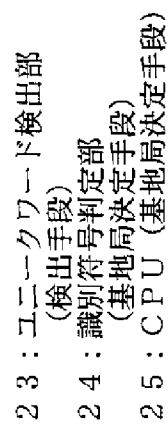 23：ユニークワード検出部
（検出手段）
24：識別符号判定部
（基地局決定手段）
25：CPU（基地局決定手段）